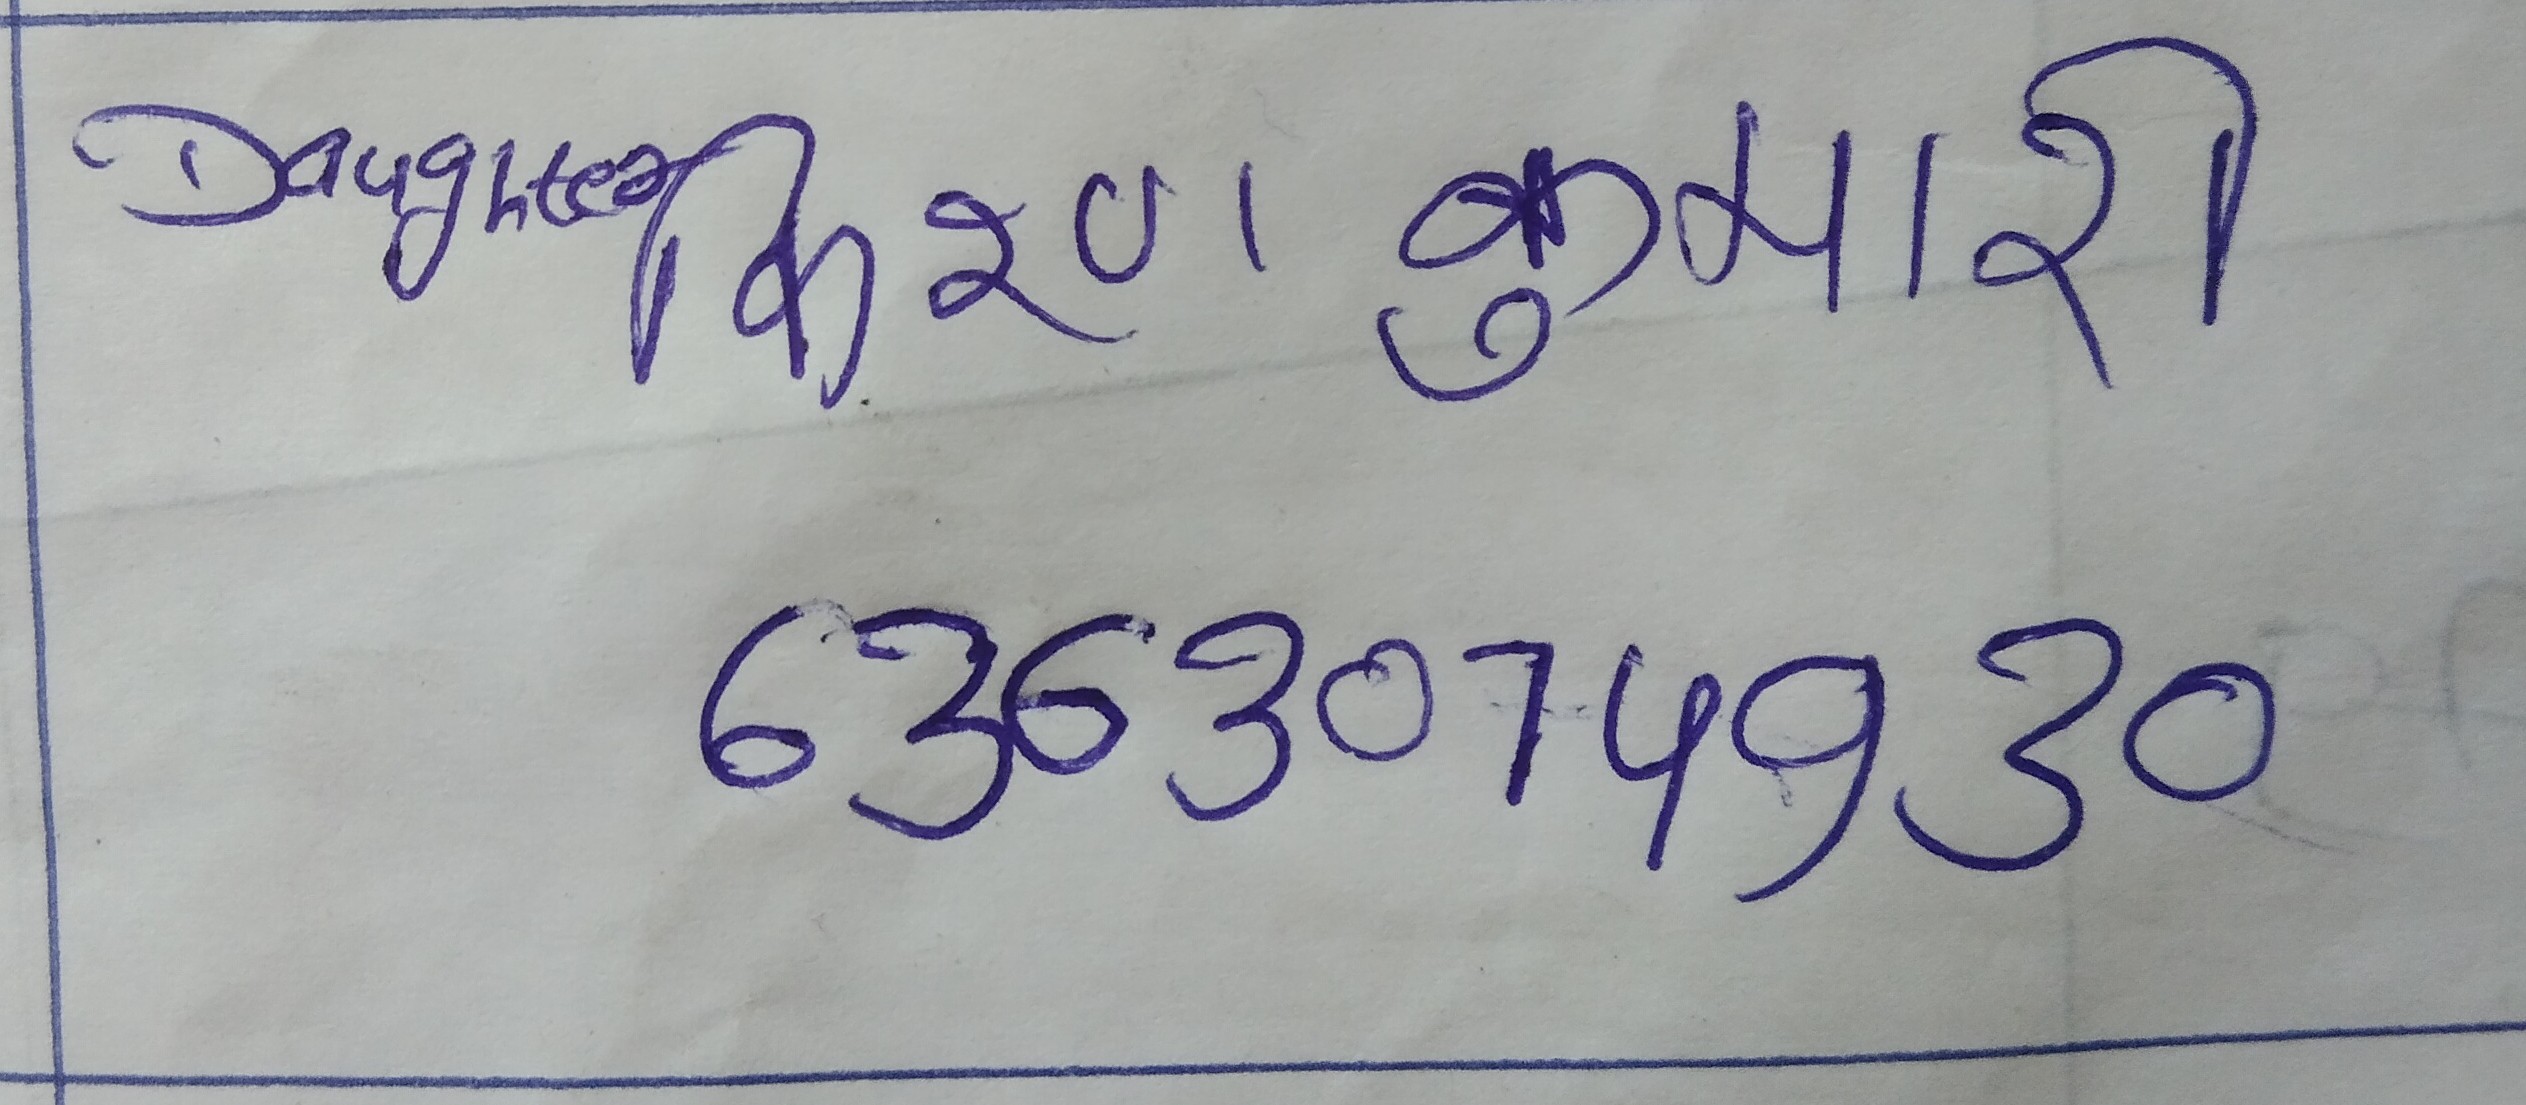 Daughter किरण कुमारी
6363074930